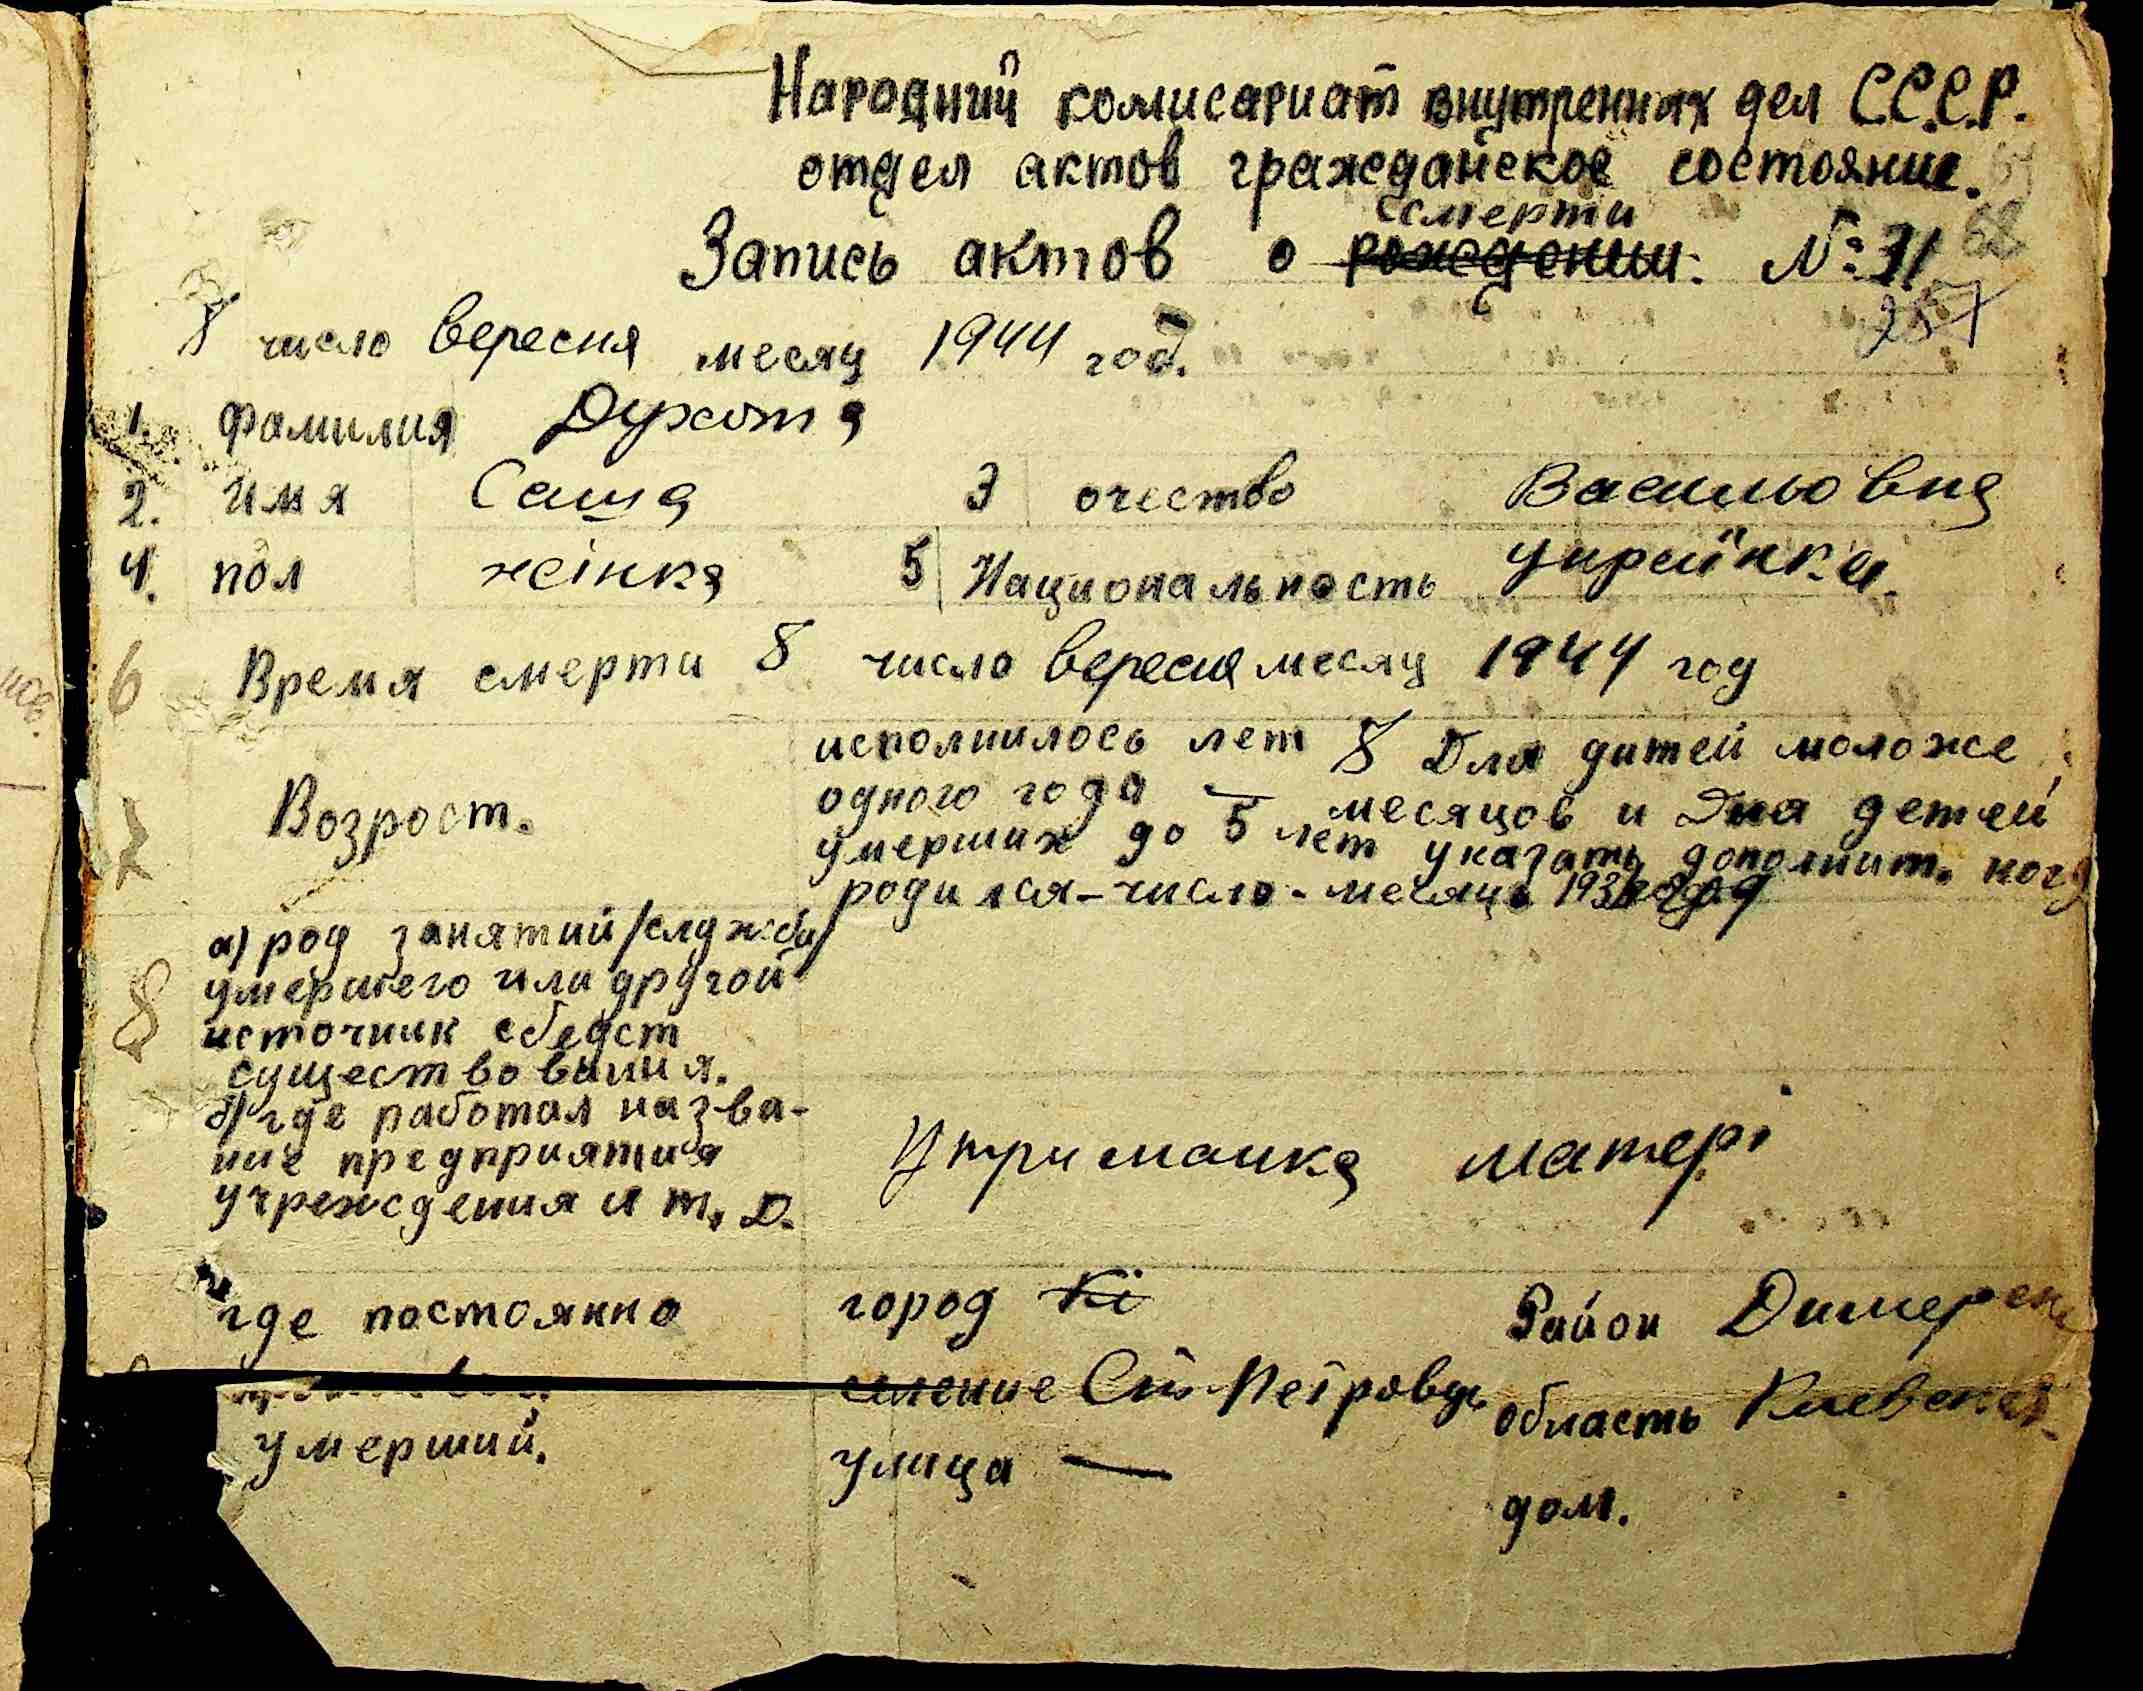 Народний комисариат внутренних дел С.С.С.Р.
отдел актов граждайское состояние.
Запись актов о рождении. смерти № 31
62
257
8 число вересня месяц 1944 год.
1. Фамилия Духота
2. имя Саша 3 очество Васильовна
4. пол жінка 5 Национальность українка.
6 Время смерти 8 число вересня месяц 1944 год
7 Возрост. исполнилось лет 8 Для дитей моложе
одного года — месяцов и Для детей
умерших до 5 лет указать дополнит. когд
родился-число-месяць 193 года
8 а) род занятий/служби/
умершего или другой
источник
существования.
б) где работал назва-
ние предприятия
учреждения и т. д.
Утриманка матері
где постоянно город Кі Район Димерськ
селение Ст. Петровць область Киевск
умерший. улица — дом.